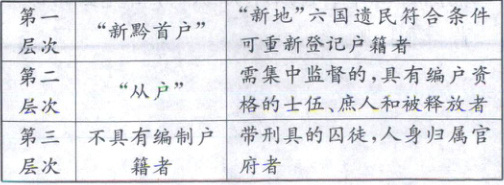 第一
层次
“新黔首户”
“新地”六国遗民符合条件
可重新登记户籍者
第二
层次
“从户”
需集中监督的,具有编户资
格的士伍、庶人和被释放者
第三
层次
不具有编制户
籍者
带刑具的囚徒,人身归属官
府者